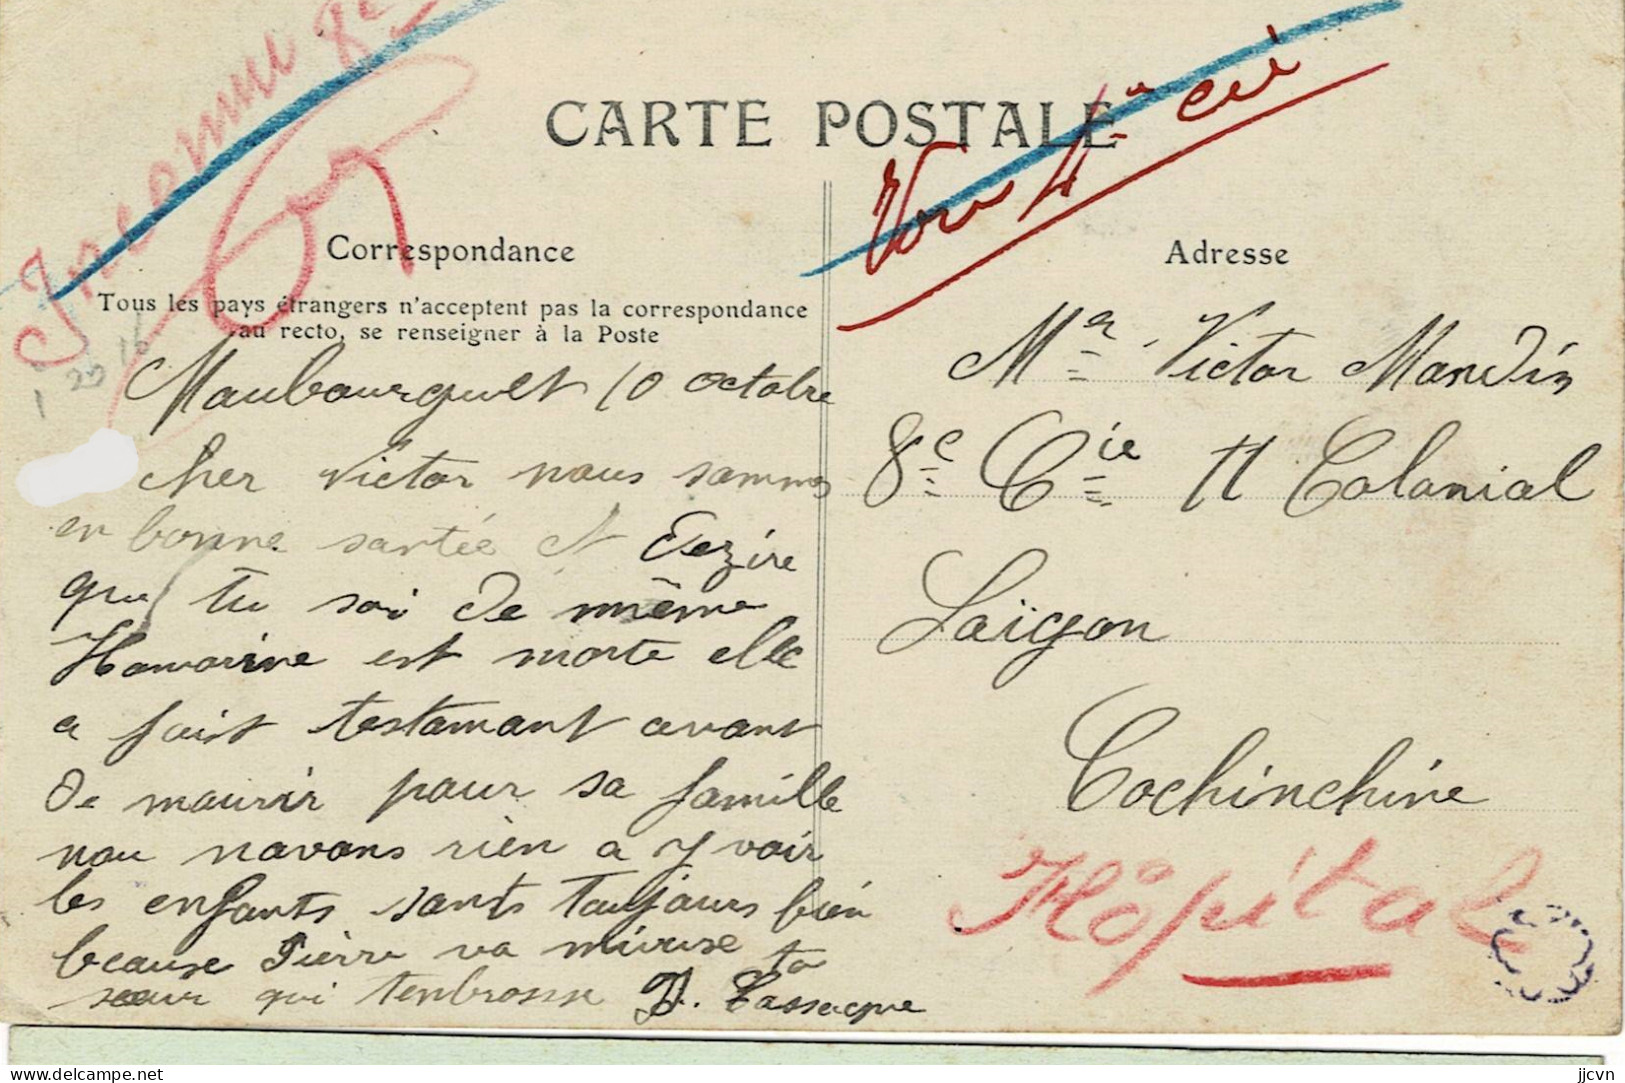 Inconnu 8e
CARTE POSTALE
Voir 4e Cie
Correspondance
Tous les pays étrangers n'acceptent pas la correspondance
au recto, se renseigner à la Poste
Maubourguet 10 octobre
cher Victor nous sommes
en bonne santée et dezire
que tu soi de même
est morte elle
a fait testamant avant
de mourir pour sa famille
nou navons rien a y voir
les enfants sonts toujours bien
Pierre va mieuse ta
sœur qui tenbrasse
Adresse
Mr Victor Mandin
8e Cie 11 Colonial
Saïgon
Cochinchine
Hôpital
delcampe.net
jjcvn